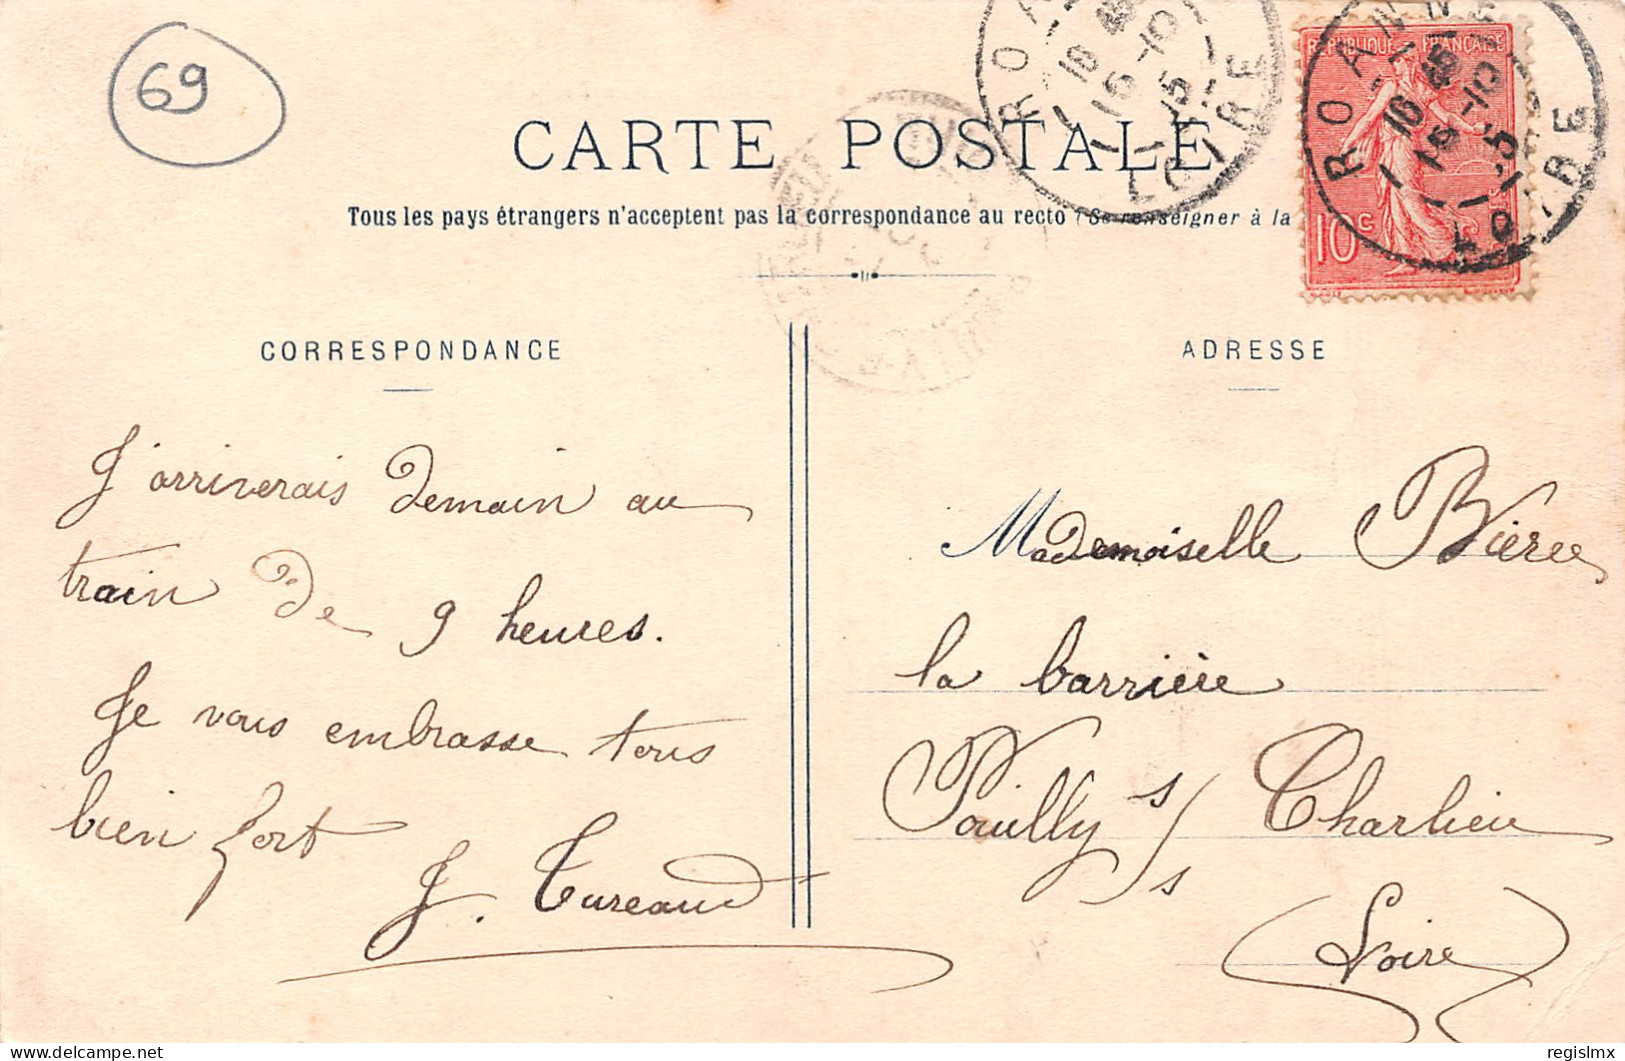 69
CARTE POSTALE
Tous les pays étrangers n'acceptent pas la correspondance au recto (Se renseigner à la
RÉPUBLIQUE FRANÇAISE
10c
ROANNE
15-10
LOIRE
ROANNE
15-10
LOIRE
CORRESPONDANCE
J'arriverais demain au
train de 9 heures.
Je vous embrasse tous
bien fort
J. Tureaud
ADRESSE
Mademoiselle
la barrière
Pouilly s/s Charlieu
Loire
delcampe.net
regislmx